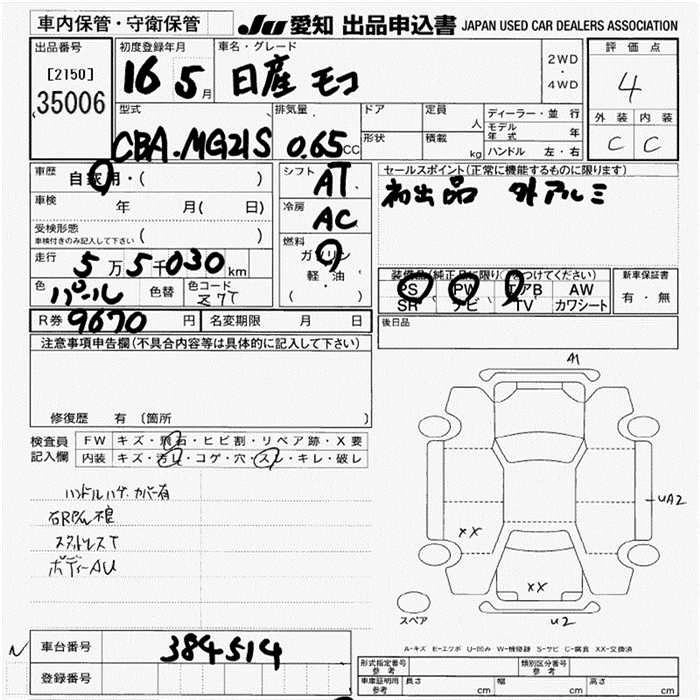 車内保管・守衛保管
JU 愛知 出品申込書 JAPAN USED CAR DEALERS ASSOCIATION
出品番号
[2150]
35006
初度登録年月
16 5月
車名・グレード
日産 モコ
2WD
・
4WD
評価点
4
外装 内装
C C
型式
CBA.MG21S
排気量
0.65CC
ドア
形状
定員
人
積載
kg
ディーラー・並行
モデル年式 年
ハンドル 左・右
車歴
自家用・( )
車検
年 月( 日)
受検形態
車検付きのみ記入して下さい ( )
走行
5万5千030km
色
パール
色替
色コード
Z7T
R券 9670円
名変期限 月 日
シフト
AT
冷房
AC
燃料
ガソリン
軽・油
( )
セールスポイント(正常に機能するものに限ります)
初出品 外アルミ
装備品(純正品に限り○をつけてください)
PS PW エアB AW
SR ナビ TV カワシート
新車保証書
有・無
後日品
注意事項申告欄(不具合内容等は具体的に記入して下さい)
修復歴 有 〔箇所 〕
検査員記入欄
FW キズ・飛石・ヒビ割・リペア跡・X要
内装 キズ・汚レ・コゲ・穴・スレ・キレ・破レ
ハンドルハゲ・カバー有
スタットレスT
ボディーAU
A1
UA2
XX
XX
U2
スペア
A-キズ E-エクボ U-凹み W-補修跡 S-サビ C-腐食 XX-交換済
車台番号 384514
登録番号
形式指定番号 参考
類別区分番号 参考
車庫証明用 参考
長さ cm 幅 cm 高さ cm